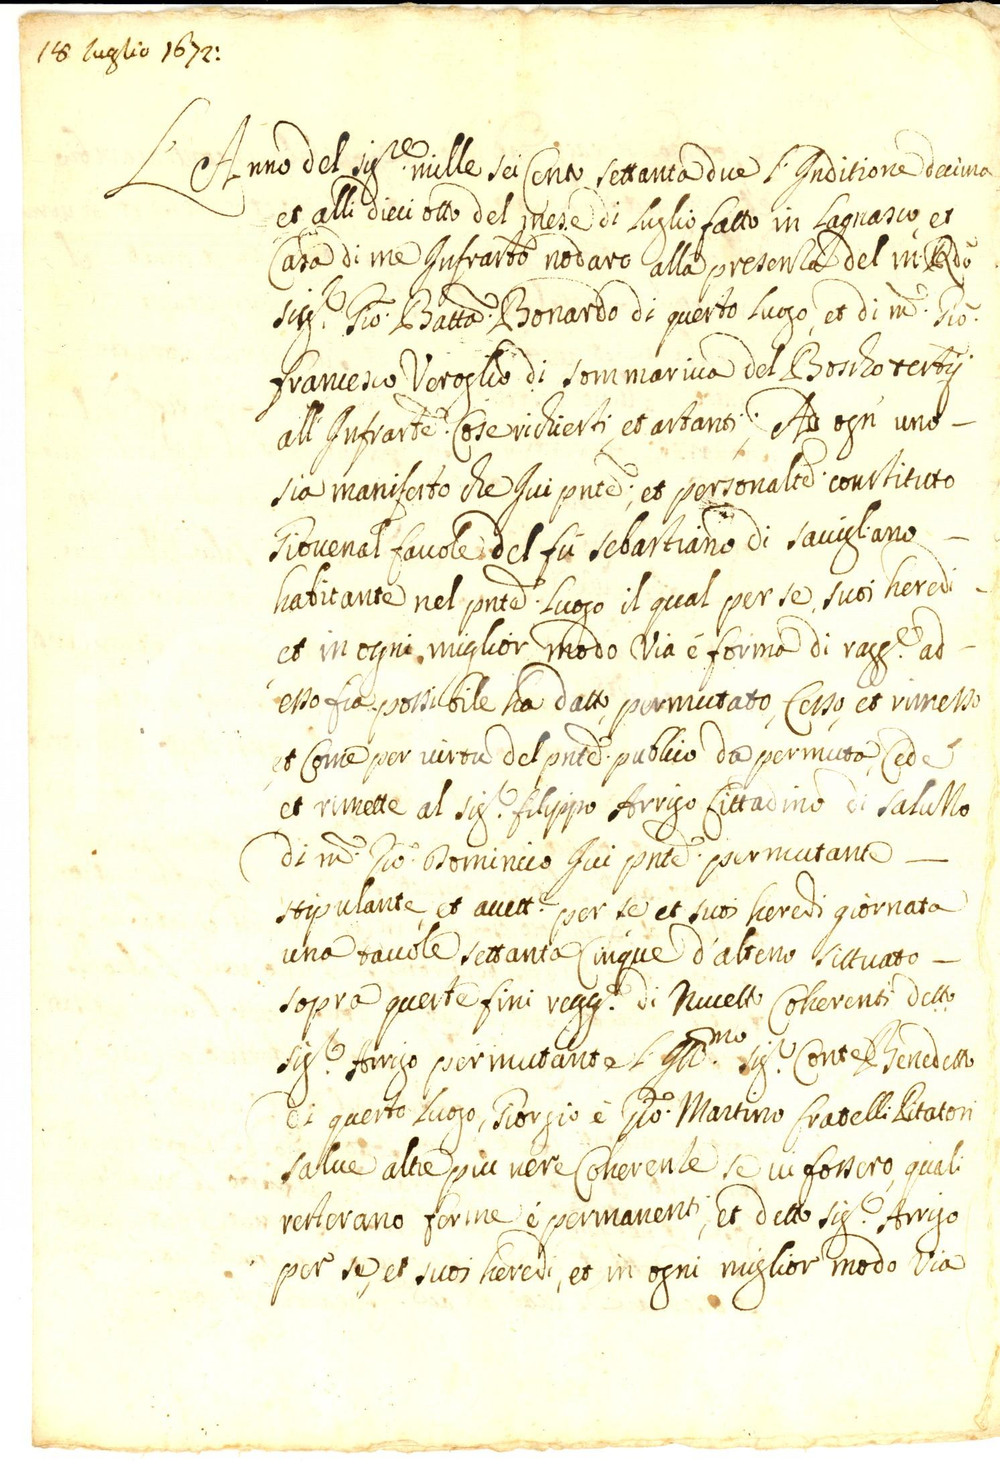 18 luglio 1672:
L'Anno del Sig.re mille sei Cento settanta due l'Inditione decima
et alli dieci otto del mese di luglio fatto in Lagnasco, et
Casa di me Infrartõ nodaro alla presenza del m.
sig.r Gio. Batta. Bonardo di questo luogo, et di m.r Gio.
francesco Veroglio di sommariva del Boscho testij
all' Infrarte. Cose richiesti, et astanti; Ad ogn' uno -
sia manifesto che Qui pnte., et personalte. constituto
Giovenal favole del fu sebastiano di savigliano -
habitante nel pnte. Luogo il qual per se, suoi heredi -
et in ogni miglior modo Via é forma di ragg.e ad -
esso fia possibile ha datto, permutato, Cesso, et rimesso
et Come per virtu del pnte. publico da permuta, Cede
et rimette al sig.r filippo Arrigo Cittadino di saluzzo
di m.r Gio. Dominico Qui pnte. permutante -
stipulante, et acett.e per se et suoi heredi giornata
una tavole settanta Cinque d'alteno sittuato -
sopra queste fini regg.e di Nucetto Coherenti detto
sig.r Arrigo permutante l'Ill.mo sig.r Conte Benedetto
di questo luogo, Giorgio é Gio. Martino fratelli Pitatori
salve altre piu vere Coherenze se vi fossero, quali
resterano ferme é permanenti, et detto sig.r Arrigo
per se, et suoi heredi, et in ogni miglior modo Via